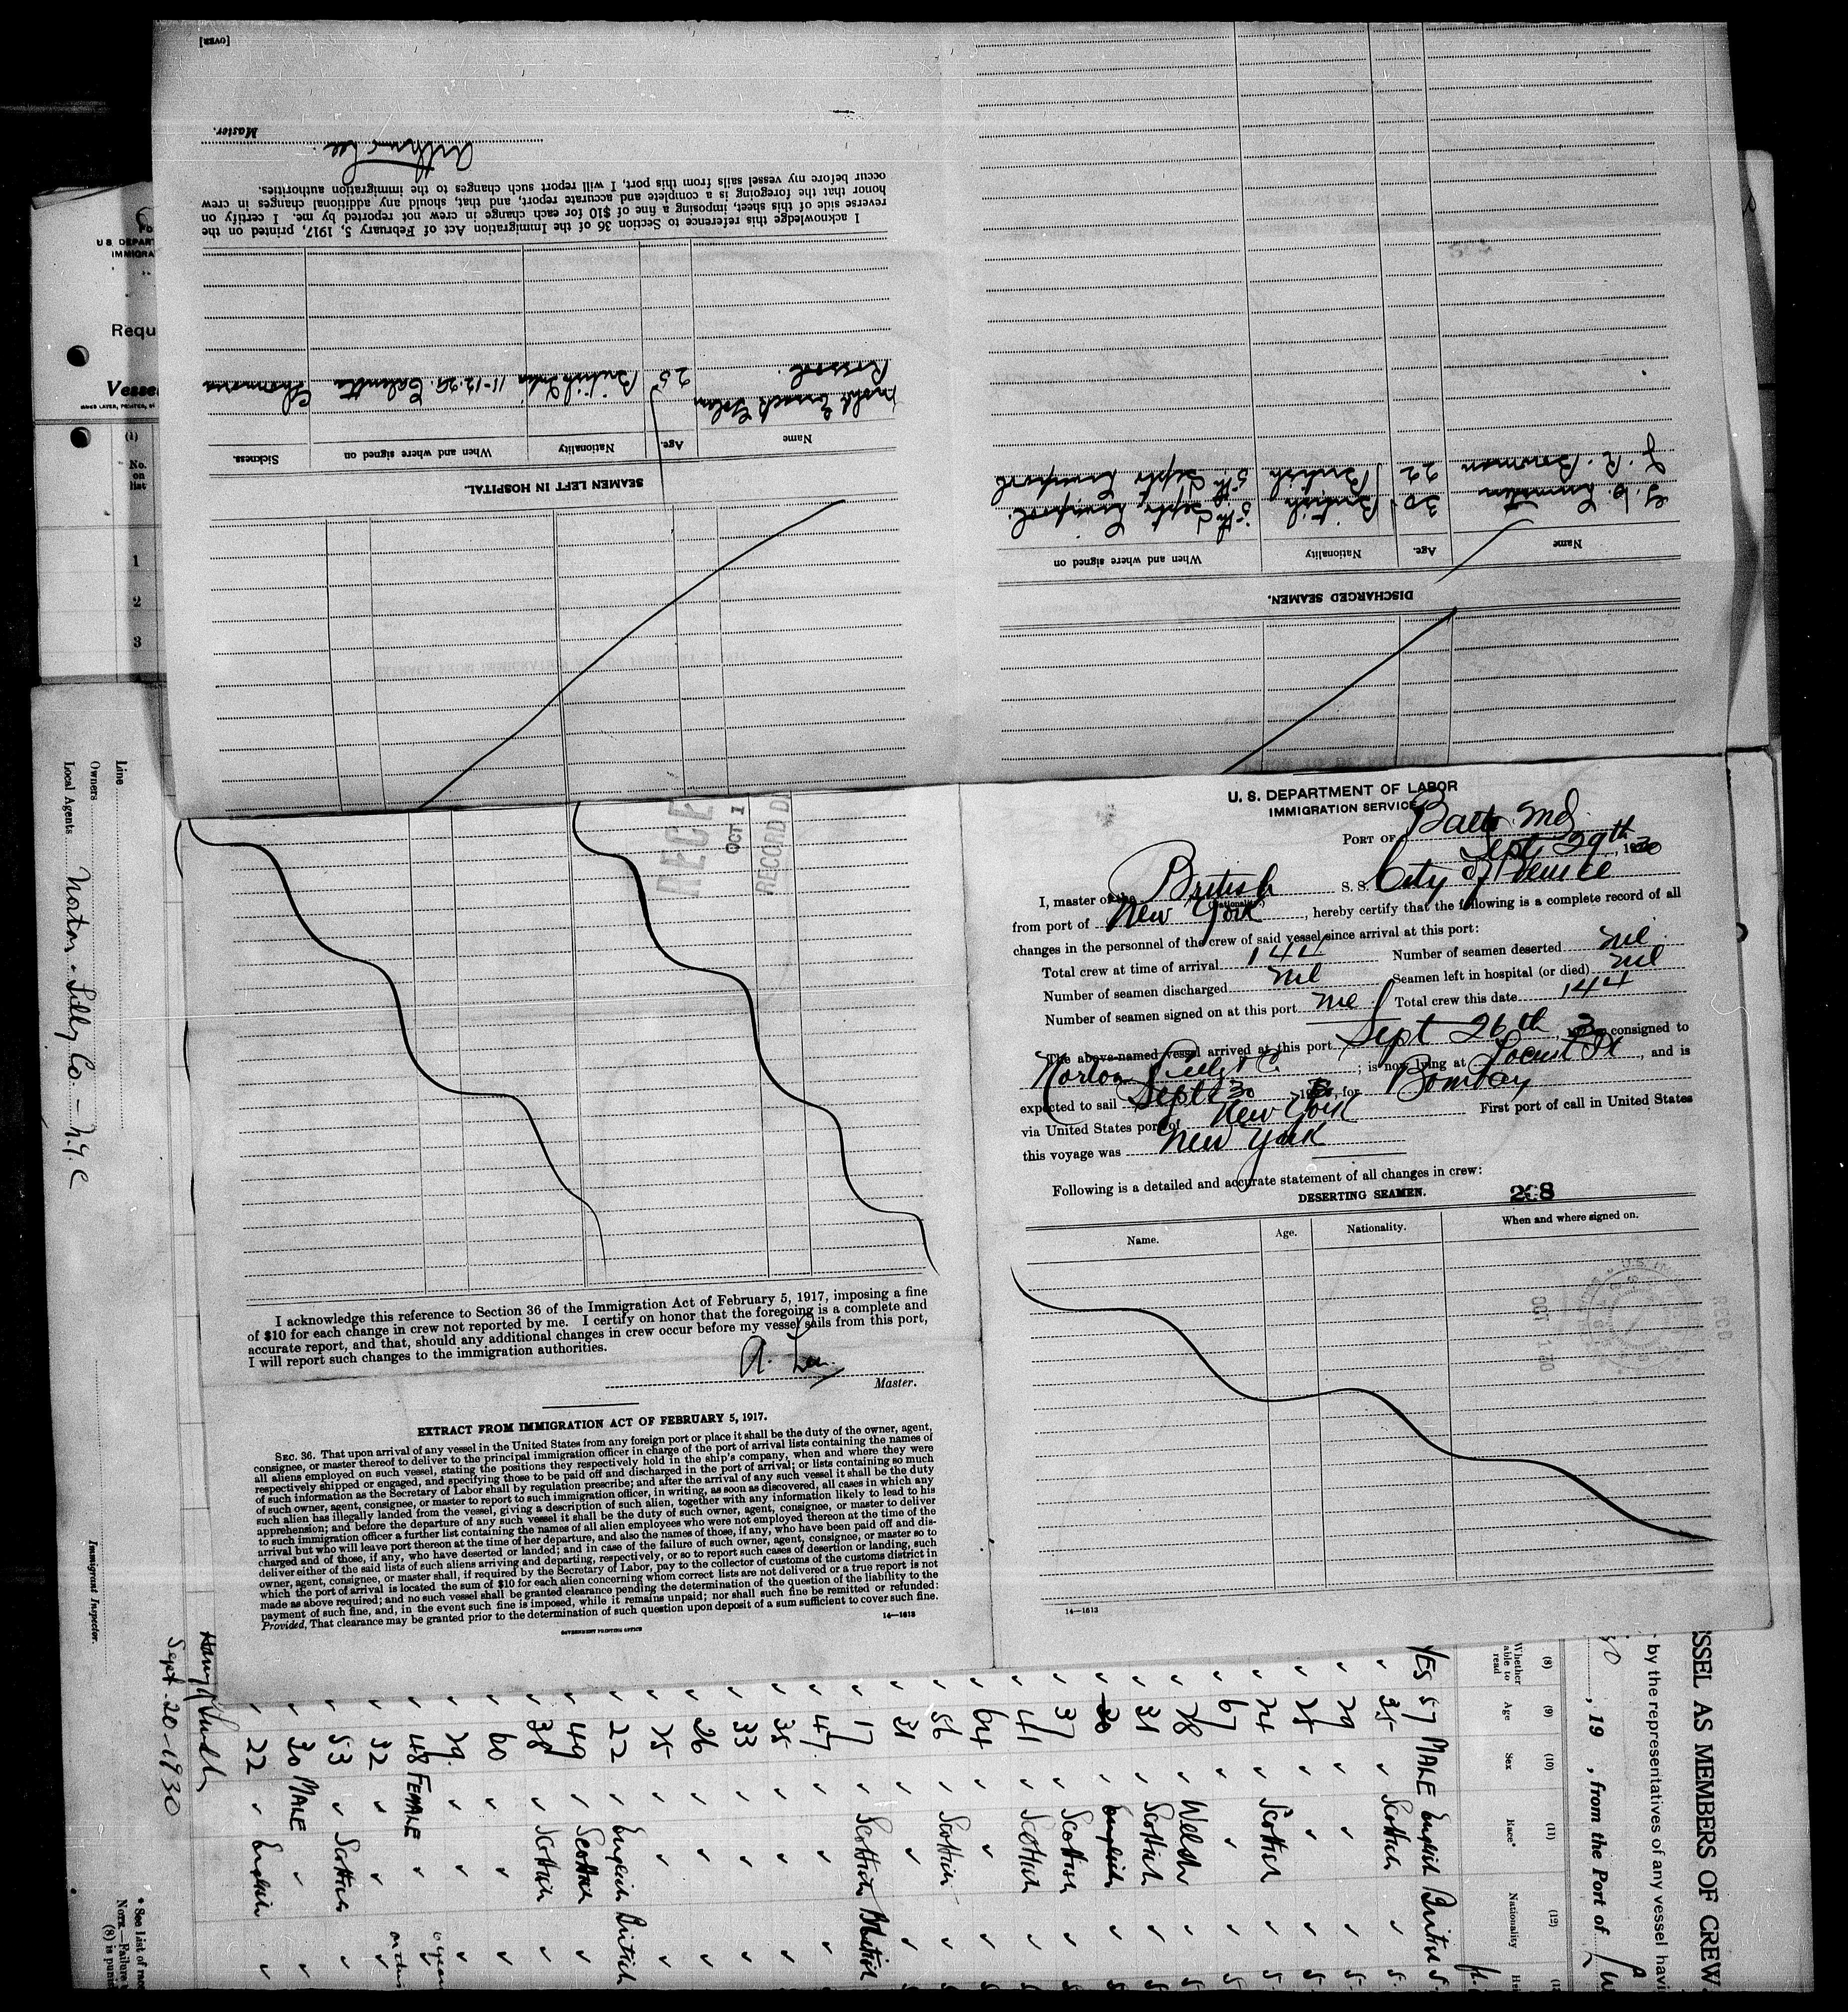 [OVER]
Master.
Arthur Lee.
I acknowledge this reference to Section 36 of the Immigration Act of February 5, 1917, printed on the
reverse side of this sheet, imposing a fine of $10 for each change in crew not reported by me. I certify on
honor that the foregoing is a complete and accurate report, and that, should any additional changes in crew
occur before my vessel sails from this port, I will report such changes to the immigration authorities.
SEAMEN LEFT IN HOSPITAL.
Name Age. Nationality When and where signed on Sickness.
25 British 11-12-29. Calcutta
DISCHARGED SEAMEN.
Name Age. Nationality When and where signed on
30 British 5th Septr Liverpool.
J. R. Bowman 22 British 5th Septr Liverpool
U S DEPAR
IMMIGRA
Requ
Vesse
(1)
No.
on
list
1
2
3
Line
Owners
Local Agents Norton Lilly Co — N.Y.C
Immigrant Inspector.
RECE
OCT 1
RECORD D
I acknowledge this reference to Section 36 of the Immigration Act of February 5, 1917, imposing a fine
of $10 for each change in crew not reported by me. I certify on honor that the foregoing is a complete and
accurate report, and that, should any additional changes in crew occur before my vessel sails from this port,
I will report such changes to the immigration authorities.
A. Lee.
Master.
EXTRACT FROM IMMIGRATION ACT OF FEBRUARY 5, 1917.
SEC. 36. That upon arrival of any vessel in the United States from any foreign port or place it shall be the duty of the owner, agent,
consignee, or master thereof to deliver to the principal immigration officer in charge of the port of arrival lists containing the names of
all aliens employed on such vessel, stating the positions they respectively hold in the ship's company, when and where they were
respectively shipped or engaged, and specifying those to be paid off and discharged in the port of arrival; or lists containing so much
of such information as the Secretary of Labor shall by regulation prescribe; and after the arrival of any such vessel it shall be the duty
of such owner, agent, consignee, or master to report to such immigration officer, in writing, as soon as discovered, all cases in which any
such alien has illegally landed from the vessel, giving a description of such alien, together with any information likely to lead to his
apprehension; and before the departure of any such vessel it shall be the duty of such owner, agent, consignee, or master to deliver
to such immigration officer a further list containing the names of all alien employees who were not employed thereon at the time of the
arrival but who will leave port thereon at the time of her departure, and also the names of those, if any, who have been paid off and dis-
charged and of those, if any, who have deserted or landed; and in case of the failure of such owner, agent, consignee, or master so to
deliver either of the said lists of such aliens arriving and departing, respectively, or so to report such cases of desertion or landing, such
owner, agent, consignee, or master shall, if required by the Secretary of Labor, pay to the collector of customs of the customs district in
which the port of arrival is located the sum of $10 for each alien concerning whom correct lists are not delivered or a true report is not
made as above required; and no such vessel shall be granted clearance pending the determination of the question of the liability to the
payment of such fine, and, in the event such fine is imposed, while it remains unpaid; nor shall such fine be remitted or refunded:
Provided, That clearance may be granted prior to the determination of such question upon deposit of a sum sufficient to cover such fine.
14—1613
GOVERNMENT PRINTING OFFICE
U. S. DEPARTMENT OF LABOR
IMMIGRATION SERVICE
PORT OF Balto Md.
Sept 29th, 1930
I, master of the British S. S. City of Venice
(Nationality)
from port of New York, hereby certify that the following is a complete record of all
changes in the personnel of the crew of said vessel since arrival at this port:
Total crew at time of arrival 144 Number of seamen deserted nil
Number of seamen discharged nil Seamen left in hospital (or died) nil
Number of seamen signed on at this port nil Total crew this date 144
The above-named vessel arrived at this port Sept 26th 30 consigned to
Norton Lilly & Co ; is now lying at Locust Pt, and is
expected to sail Sept 30, for Bombay
via United States port of New York First port of call in United States
this voyage was New York
Following is a detailed and accurate statement of all changes in crew:
DESERTING SEAMEN.
268
Name. Age. Nationality. When and where signed on.
OCT 1 30
14—1613
SSEL AS MEMBERS OF CREW
by the representatives of any vessel havi
, 19 , from the Port of
(8) (9) (10) (11) (12)
Whether able to read Age Sex Race* Nationality
YES 57 MALE English British 5
35 Scottish
29
25
24 Scottish
67
28 Welsh
31 Scottish
30 English
37 Scottish
41 Scottish
64
56 Scottish
31
17 Scottish British
47
35
33
26
25
22 English British
49 Scottish
38 Scottish
60
29.
48 FEMALE
32
53 Scottish
30 MALE
22 English
Sept. 20-1930
* See List of rac
NOTE.—Failure
(8) is puni